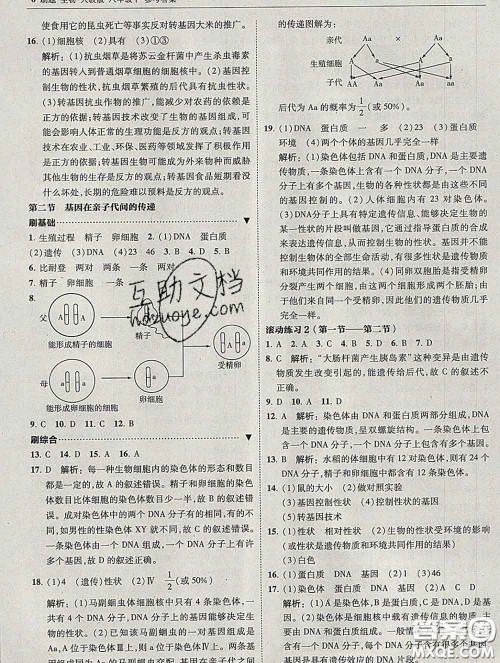 使用它的昆虫死亡等事实反对转基因大米的推广。
16. (1)细胞核 (2)具有 (3)①③
解析:(1)抗虫烟草是将苏云金杆菌中产生杀虫毒素的基因转入到普通烟草细胞的细胞核中形成的。(2)基因控制生物的性状,抗虫烟草繁殖的后代具有抗虫性状。(3)转基因抗虫作物的推广,能减少对农药的依赖是正方的依据;转基因技术改变了生物的基因组成,可能会影响人体正常的生理功能是反方的观点;转基因技术在农业、工业、环保、医药等领域发挥了积极的作用是正方的依据;转基因生物可能成为外来物种威胁我国的生态安全是反方的观点;转基因食品短时看没什么坏处,长期的危险难以预料是反方的观点。
第二节 基因在亲子代间的传递
刷基础
1. 生殖过程 精子 卵细胞 2. (1)DNA 蛋白质
(2)遗传 (3)DNA (4)23 46 3. B 4. D 5. D
6. 比耐登 两对 两条 一条 两对
7. 精子 卵细胞 受精卵
8.
父 A A
能形成精子的细胞
A
精子
A a
受精卵
母 a a
能形成卵细胞的细胞
a
卵细胞
9. C 10. D 11. C 12. B
刷综合
13. C 14. B 15. D 16. C
17. D 解析:每一种生物细胞内的染色体的形态和数目都是一定的,故 A 的叙述错误。精子和卵细胞的染色体数目比体细胞的染色体数目少一半,故 B 的叙述错误。成对染色体上的两个 DNA 分子有的相同,有的不同,如男性的性染色体 XY 就不同,故 C 的叙述错误。一条染色体由一个 DNA 组成,一个 DNA 分子上有许多个基因,故 D 的叙述正确。
18. (1)4 (遗传)性状 (2)Ⅳ 1/2(或 50%)
解析:(1)马副蛔虫体细胞核中只有 4 条染色体,染色体上具有控制生物性状的基因。(2)已知该马副蛔虫的体细胞中某对染色体上有一对基因组成为 Aa,A 位于染色体Ⅲ上,则 a 位于染色体Ⅳ上。若与之交配的异性基因组成也为 Aa,基因在亲子代之间
的传递图解:
亲代 Aa × Aa
生殖细胞 A a A a
子代 AA Aa Aa aa
后代为 Aa 的概率为 1/2(或 50%)。
19. (1)DNA 蛋白质 一 多 (2)23 (3)蛋白质 环境 (4)两个个体的基因几乎完全一样
解析:(1)染色体包括 DNA 和蛋白质。DNA 是主要遗传物质,一条染色体上一般只有一个 DNA 分子,一个 DNA 分子上有多个基因,生物的各种性状都是由这些不同的基因控制的。(2)人体细胞内有 23 对染色体。(3)DNA 分子上具有特定遗传信息、能够决定生物的某一性状的片段叫做基因,它通过指导蛋白质的合成来表达自己所携带的遗传信息,从而控制生物的性状。基因控制生物体的全部生命活动,有很多性状表现是环境和基因共同作用的结果。(4)同卵双胞胎是指受精卵分裂过程中,分裂成两个胎儿,他们具有几乎完全一样的遗传物质,基因几乎完全一样。
滚动练习 2 (第一节——第二节)
1. A 2. A 3. C 4. B 5. D 6. B 7. D
8. C 解析:“大肠杆菌产生胰岛素”这种变异是由遗传物质发生改变引起的,能遗传给后代,故 C 正确。
9. D 10. C 11. D
12. A 解析:染色体由 DNA 和蛋白质两部分组成,DNA 是主要的遗传物质,呈双螺旋结构。一条染色体上包含一个 DNA 分子,一个 DNA 分子上包含有多个基因。
13. B 解析:水稻的体细胞中有 12 对染色体,则每个精子和卵细胞中都含有 12 条染色体。
14. (1)鼠的大小 (2)对照实验
(3)基因控制性状 (4)控制性状的基因
(5)转基因技术
15. (1)基因型对性状的影响 (2)生物的性状受环境的影响(或性状是遗传物质和环境共同作用的结果)
(3)白色
16. (1)蛋白质 DNA 蛋白质 (2)DNA (4)46
解析:(1)染色体主要由 DNA 分子和蛋白质分子构成。(2)DNA 是主要的遗传物质,DNA 上决定生物性状的小单位,叫基因。(3)染色体是细胞核中载有遗传信息的物质,在显微镜下
互助文档
hdzuoye.com